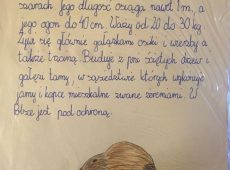 szarach. Jego długość osiąga nawet 1 m, a
jego ogon do 40 cm. Waży od 20 do 30 kg.
Żywi się głównie gałązkami osiki i wierzby a
także trzciną. Buduje z pni ściętych drzew i
gałęzi tamy, w sąsiedztwie których wykonuje
jamy i kopce mieszkalne zwane żeremiami. W
Polsce jest pod ochroną.